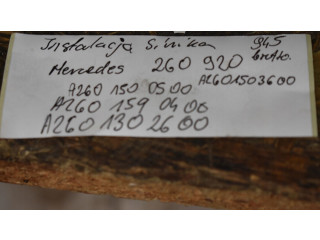 Instalacja Silnika 945
Mercedes 260 920 brutto.
A2601503600
A260 150 0500
A260 159 0400
A260 130 2600